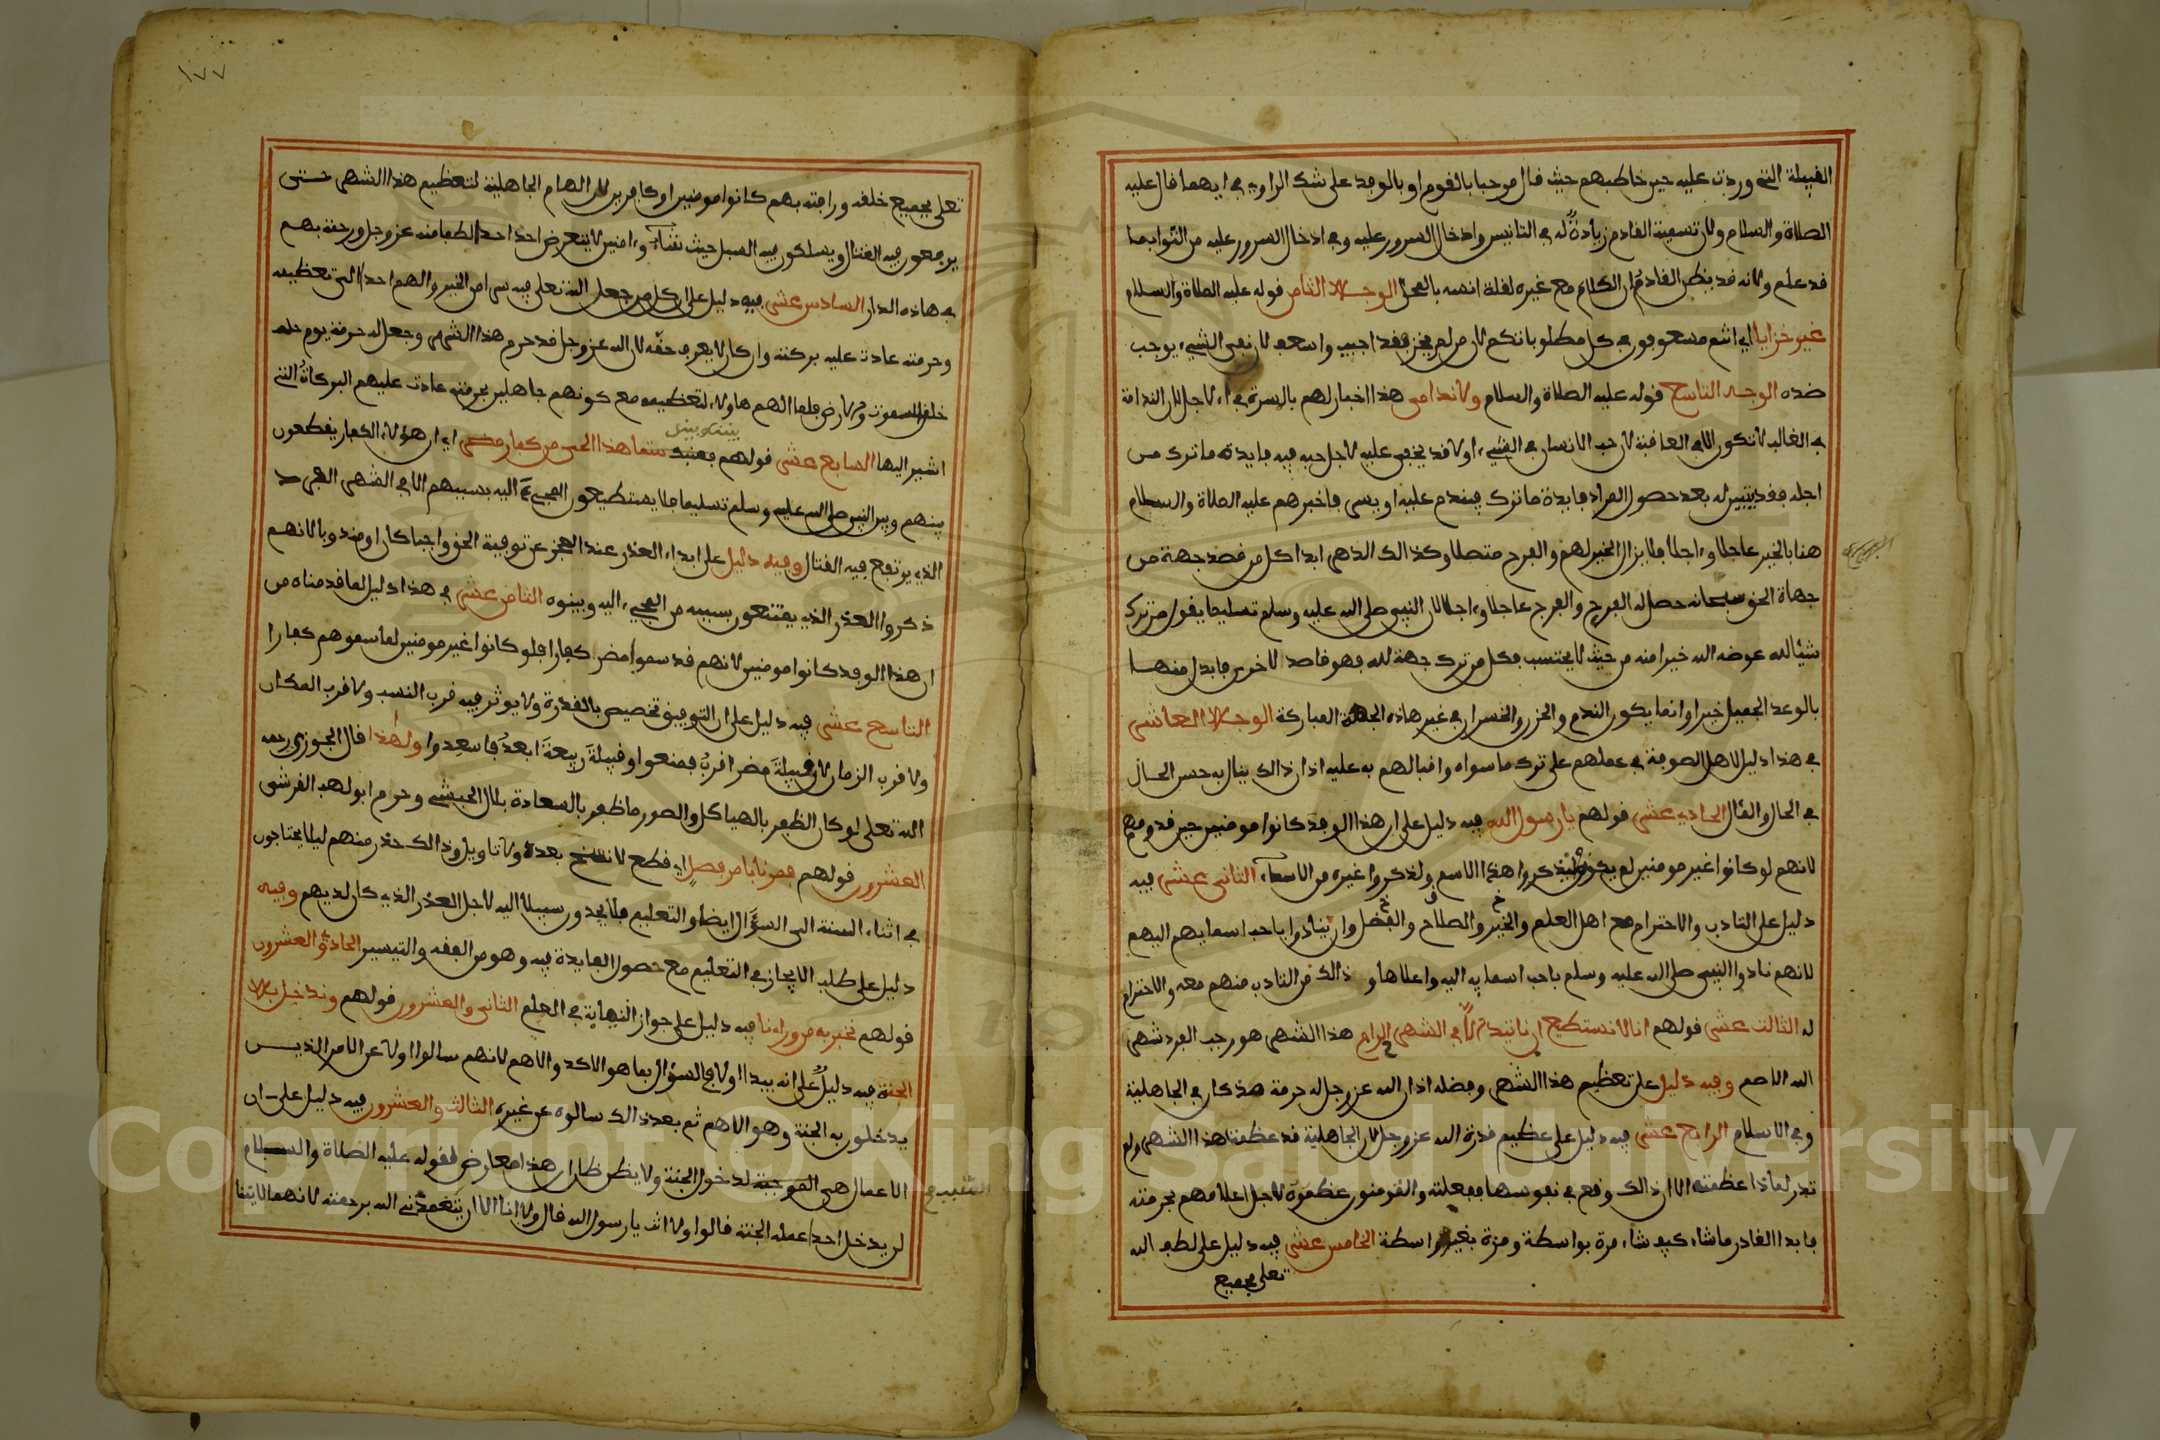 القبيلة التي وردت عليه حين خاطبهم حيث قال مرحبا بالقوم او بالوفد على شك الراوي في ايهما قال عليه
الصلاة والسلام ولان تسمية القادم زيادة له في التانيس وادخال السرور عليه وفي ادخال السرور عليه من الثواب ما
قد علم ولانه قد يظن القادم ان الكلام مع غيره لقلة انسه بالمحل الوجه الثامن قوله عليه الصلاة والسلام
غير خزايا اي انتم مسعوفون في كل مطلوباتكم لان من لم يخز فقد اجيب واسعف لان نفي الشيء يوجب
ضده الوجه التاسع قوله عليه الصلاة والسلام ولا ندامى هذا اخبار لهم بالمسرة في الاجل لان الندامة
في الغالب لا تكون الا في العاقبة لان حب الانسان في الشيء اولا قد يخفى عليه لاجل حبه فيه فايدة ما ترك من
اجله فقد يتبين له بعد حصول المراد فايدة ما ترك فيندم عليه او يسى فاخبرهم عليه الصلاة والسلام
هنا بالخير عاجلا واجلا فلا يزال الخير لهم والفرح متصلا وكذالك الذهر ابدا كل من قصد جهة من
جهاة الحق سبحانه حصل له الفرح والفرج عاجلا واجلا لان النبي صلى الله عليه وسلم تسليما يقول من ترك
شيئا لله عوضه الله خيرا منه من حيث لا يحتسب فكل من ترك جهة لله فهو قاصد لاخرى فابدل منها
بالوعد الجميل خيرا وانما يكون الندم والحزن والخسران في غير هاذه الجهة المباركة الوجه العاشر
في هذا دليل لاهل الصوفة في عملهم على ترك ما سواه واقبالهم به عليه اذ ان ذالك ينال به حسن الحال
في الحال والمئال الحادي عشر قولهم يا رسول الله فيه دليل على ان هذا الوفد كانوا مومنين حين قدومهم
لانهم لو كانوا غير مومنين لم يكونوا ليذكروا هذا الاسم ولذكروا غيره من الاسماء الثاني عشر فيه
دليل على التادب والاحترام مع اهل العلم والخير والصلاح والفضل وان ينادوا باحب اسمايهم اليهم
لانهم نادوا النبي صلى الله عليه وسلم باحب اسمايه اليه واعلاها وذالك من التادب منهم معه والاحترام
له الثالث عشر قولهم انا لا نستطيع ان ناتيك الا في الشهر الحرام هذا الشهر هو رجب الفرد شهر
الله الاصم وفيه دليل على تعظيم هذا الشهر وفضله اذ ان الله عز وجل له حرمة مذ كان في الجاهلية
وفي الاسلام الرابع عشر فيه دليل على عظيم قدرة الله عز وجل لان الجاهلية قد عظمت هذا الشهر ولم
تدر لماذا عظمته الا ان ذالك وقع في نفوسها ففعلته والمومنون عظموه لاجل اعلامهم بحرمته
فابدا القادر ما شاء كيف شاء مرة بواسطة ومرة بغير واسطة الخامس عشر فيه دليل على لطف الله
تعلى بجميع
١٧٧
تعلى بجميع خلقه ورافته بهم كانوا مومنين او كافرين لان الهام الجاهلية لتعظيم هذا الشهر حتى
يرفعون فيه القتال ويسلكون فيه السبل حيث شاءوا امنين لا يتعرض احد احدا لطفا منه عز وجل ورحمة بهم
في هاذه الدار السادس عشر فيه دليل على ان كل من جعل الله تعلى فيه سرا من الخير والهم احدا الى تعظيمه
وحرمته عادت عليه بركته وان كان لا يعرف حقه لان الله عز وجل قد حرم هذا الشهر وجعل له حرمة يوم خلق
خلق السموات والارض فلما الهم هاولاء لتعظيمه مع كونهم جاهلين بحرمته عادت عليهم البركات التي
اشير اليها السابع عشر قولهم وبيننا وبينك هذا الحي من كفار مضر اي ان هؤلاء الكفار يقطعون
بينهم وبين النبي صلى الله عليه وسلم تسليما فلا يستطيعون المجيء اليه بسببهم الا في الشهر الفرد
الذي يرتفع فيه القتال وفيه دليل على ابداء العذر عند العجز عن توفية الحق واجبا كان او مندوبا لانهم
ذكروا العذر الذي يمتنعون بسببه من المجيء اليه وبينوه الثامن عشر في هذا دليل لما قدمناه من
ان هذا الوفد كانوا مومنين لانهم قد سموا مضر كفارا فلو كانوا غير مومنين لما سموهم كفارا
التاسع عشر فيه دليل على ان التوفيق تخصيص بالقدرة ولا يوثر فيه قرب النسب ولا قرب المكان
ولا قرب الزمان لان قبيلة مضر اقرب فمنعوا وقبيلة ربيعة ابعد فاسعدوا ولهذا قال الجوزي رحمه
الله تعلى لو كان الظفر بالهياكل والصور ما ظفر بالسعادة بلال الحبشي وحرم ابو لهب القرشي
العشرون قولهم فمرنا بامر فصل اي قطع لا نسخ بعده ولا تاويل وذالك حذر منهم ليلا يحتاجون
في اثناء السنة الى السؤال ايضا والتعليم فلا يجدون سبيلا اليه لاجل العذر الذي كان لديهم وفيه
دليل على طلب الايجاز في التعليم مع حصول الفايدة فيه وهو من الفقه والتيسير الحادي والعشرون
قولهم نخبر به من وراءنا فيه دليل على جواز النيابة في العلم الثاني والعشرون قولهم وندخل به
الجنة فيه دليل على انه يبدا اولا في السؤال بما هو الاكد والاهم لانهم سالوا اولا عن الامر الذي
يدخلون به الجنة وهو الاهم ثم بعد ذالك سالوه عن غيره الثالث والعشرون فيه دليل على ان
الاعمال هي الموجبة لدخول الجنة ولا يظن ظان ان هذا معارض لقوله عليه الصلاة والسلام
لن يدخل احدا عمله الجنة قالوا ولا انت يا رسول الله قال ولا انا الا ان يتغمدني الله برحمته لانهما لا يتنا